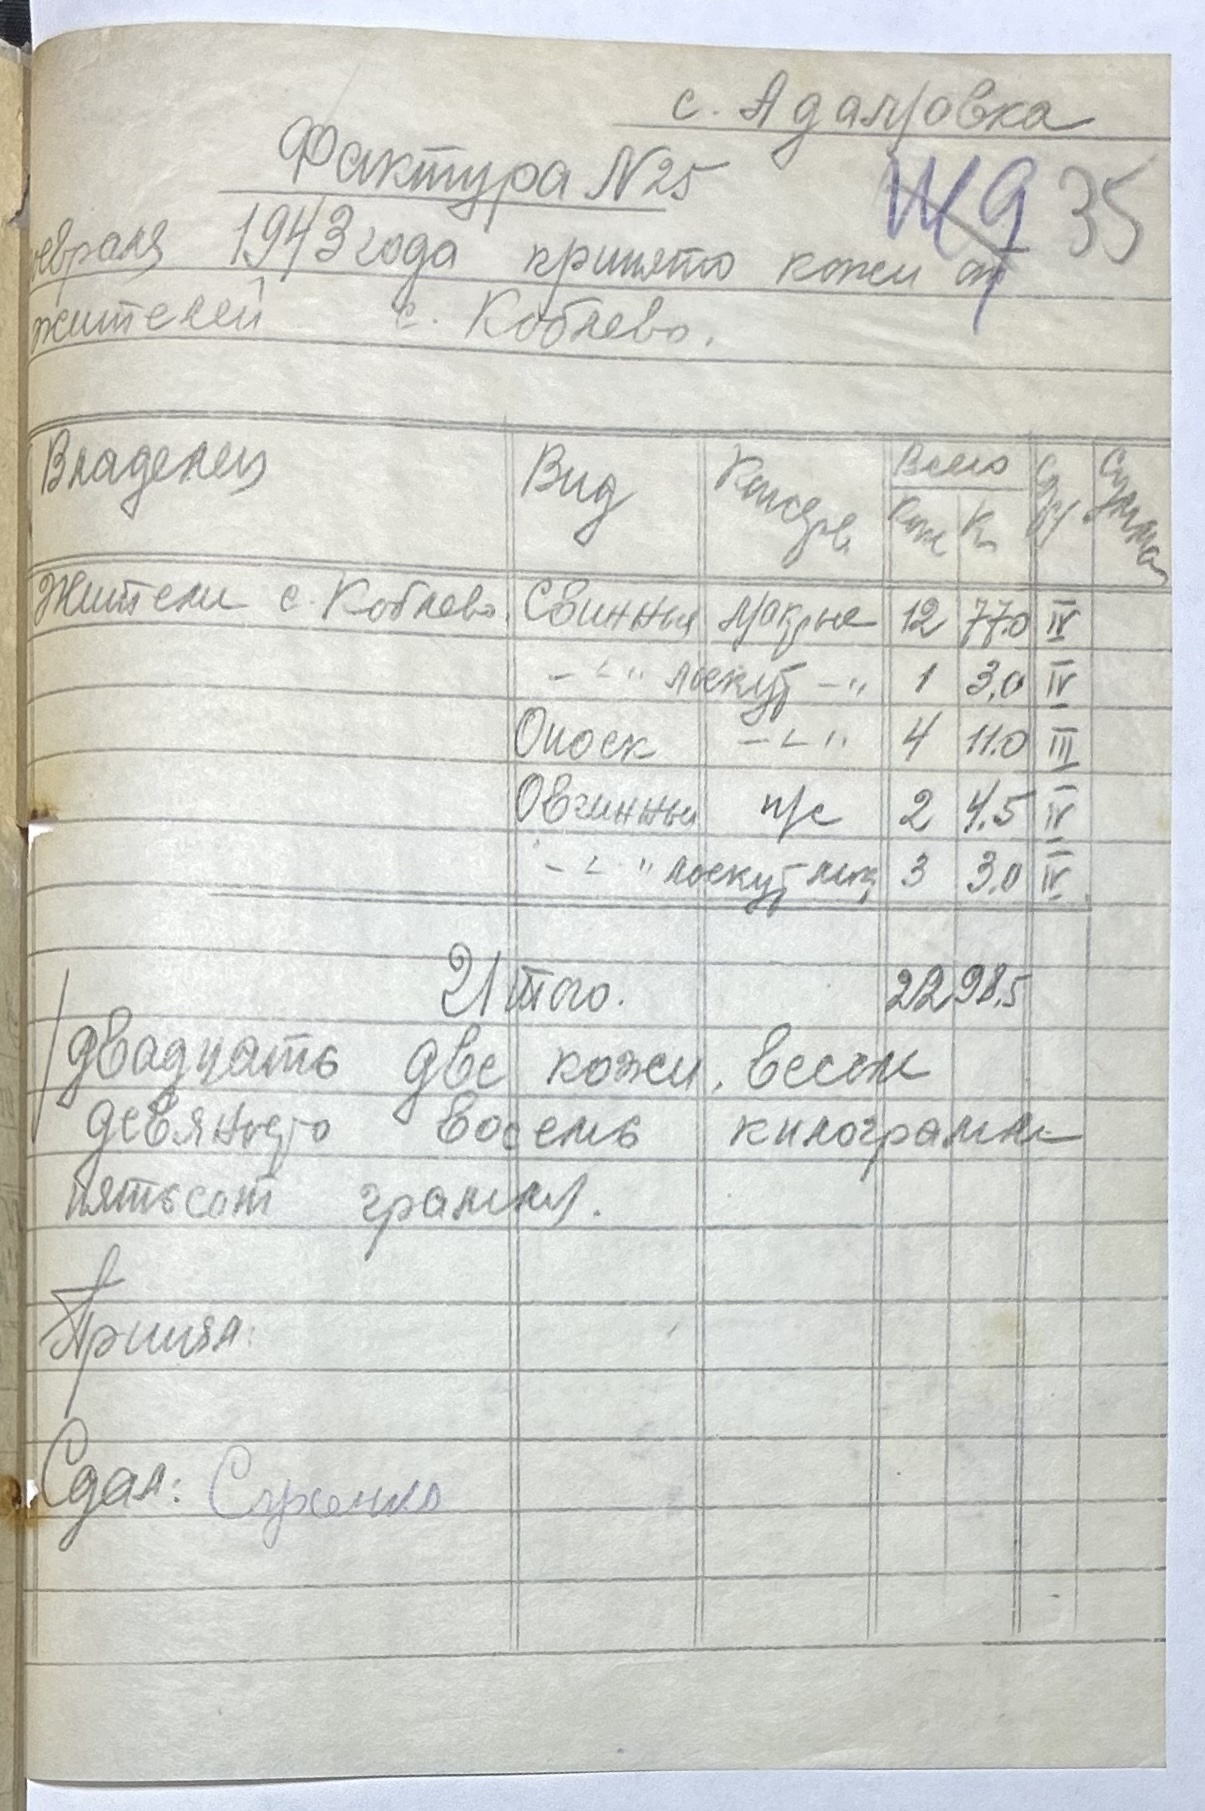 с. Адамовка
Фактура N25
35
февраля 1943 года принято кожи от
жителей с. Коблево.
Владелец Вид Консерв. Всего Сорт Сумма
Кож Кг
Жители с. Коблево. Свинные мокрые 12 77.0 IV
–"– лоскут –"– 1 3,0 IV
Опоек –"– 4 11.0 III
Овчинные п/с 2 4.5 IV
–"– лоскут 3 3.0 IV
Итого. 22 98.5
двадцать две кожи, весом
девяносто восемь килограмм
пятьсот грамм.
Принял:
Сдал: